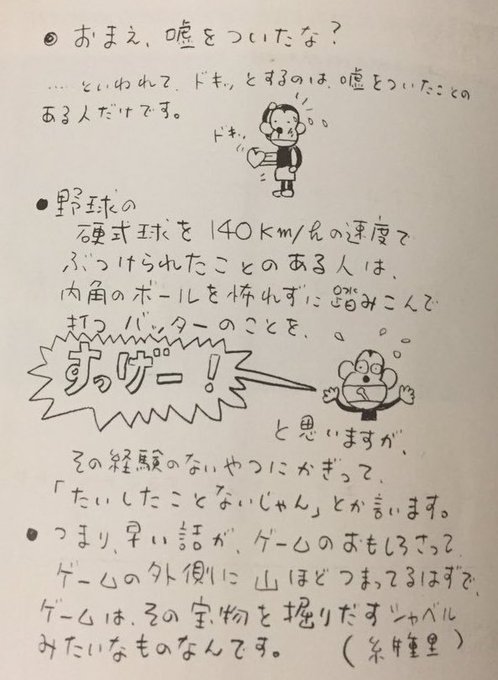 ◎ おまえ、嘘をついたな?
……といわれて、ドキッとするのは、嘘をついたことの
ある人だけです。
ドキッ
●野球の
硬式球を140km/hの速度で
ぶつけられたことのある人は、
内角のボールを怖れずに踏みこんで
打つバッターのことを、
すっげー!
と思いますが、
その経験のないやつにかぎって、
「たいしたことないじゃん」とか言います。
● つまり、早い話が、ゲームのおもしろさって、
ゲームの外側に山ほどつまってるはずで、
ゲームは、その宝物を掘りだすシャベル
みたいなものなんです。 (糸重里)